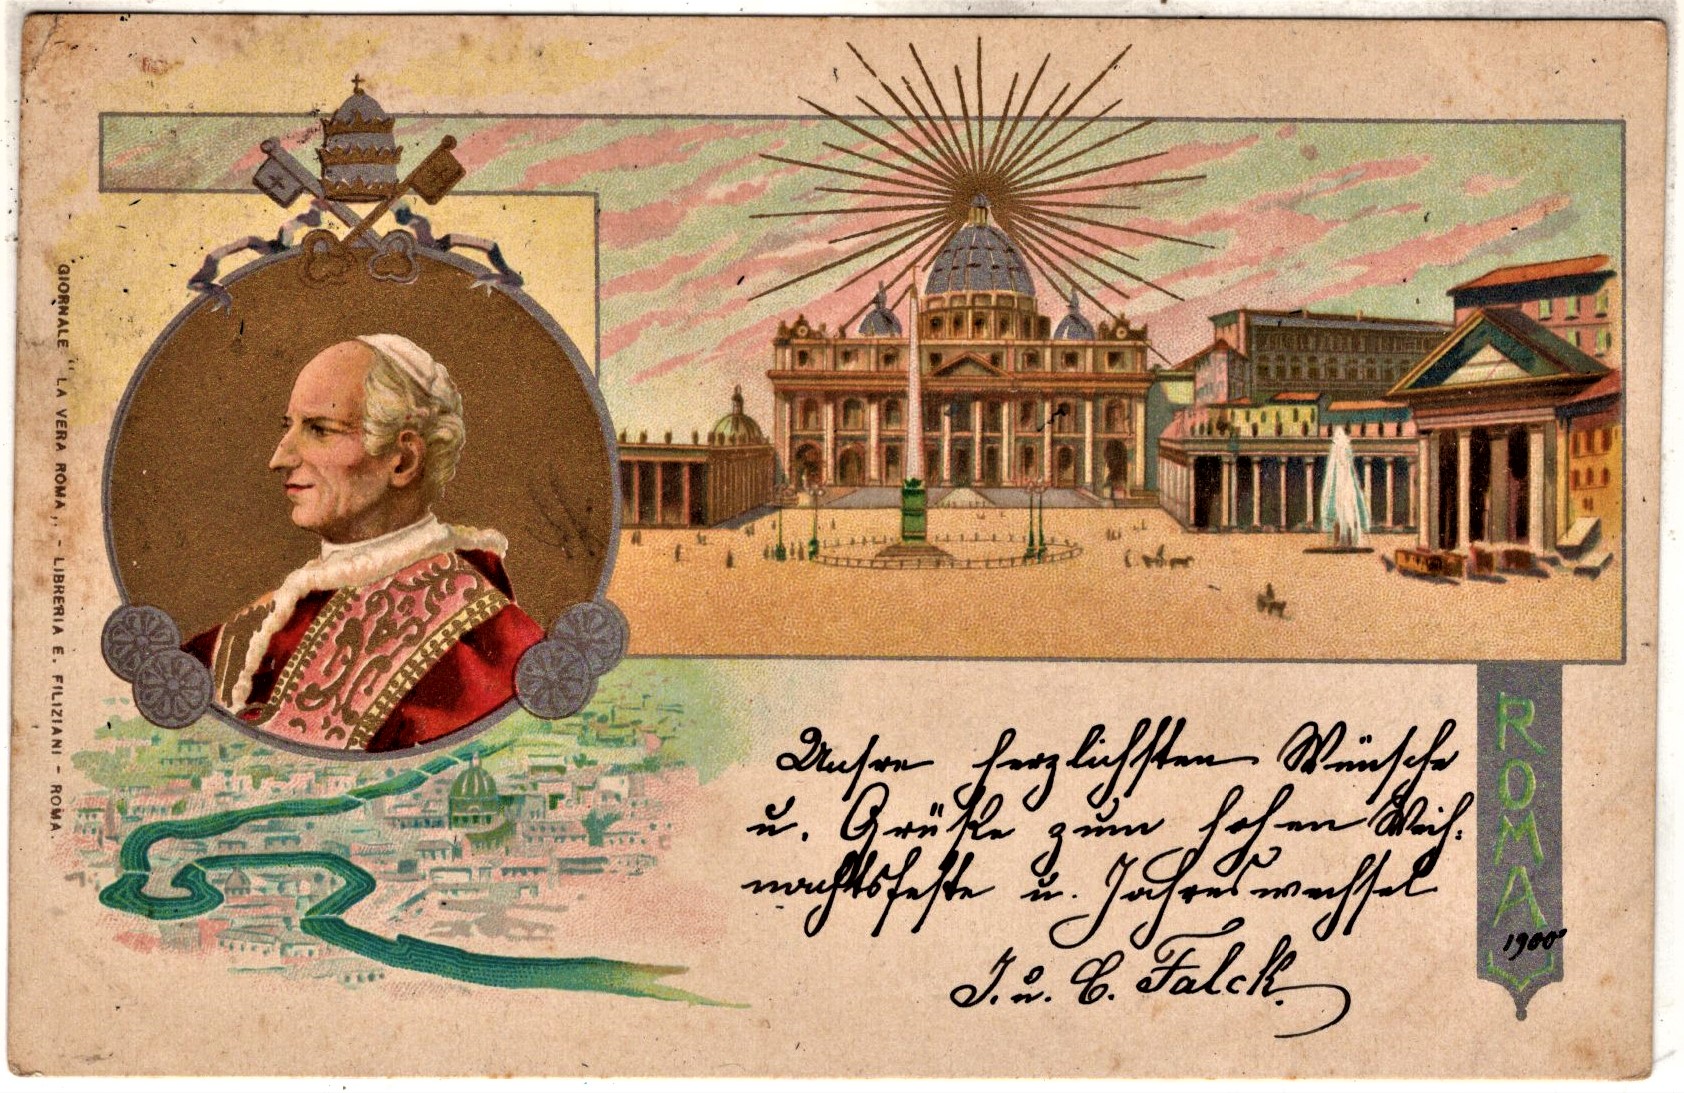 GIORNALE "LA VERA ROMA,, - LIBRERIA E. FILIZIANI - ROMA.
ROMA
1900
Unsre herzlichsten Wünsche
u. Grüße zum hohen Weih:
nachtsfeste u. Jahreswechsel
J. u. C. Falck.